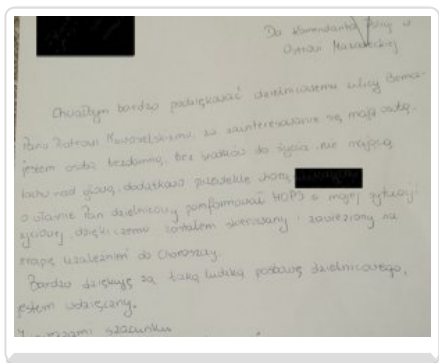 Do Komendanta Policji w
Ostrowi Mazowieckiej
Chciałbym bardzo podziękować dzielnicowemu ulicy
Pana za zainteresowanie się moją osobą.
jestem osobą bezdomną, bez środków do życia nie mającą
dachu nad głową, dodatkowo przewlekle chorą
o właśnie Pan dzielnicowy poinformował MOPS o mojej sytuacji
życiowej dzięki czemu zostałem skierowany i zawieziony na
terapię uzależnień do Choroszczy.
Bardzo dziękuję za taką ludzką postawę dzielnicowego,
jestem wdzięczny.
Z wyrazami szacunku